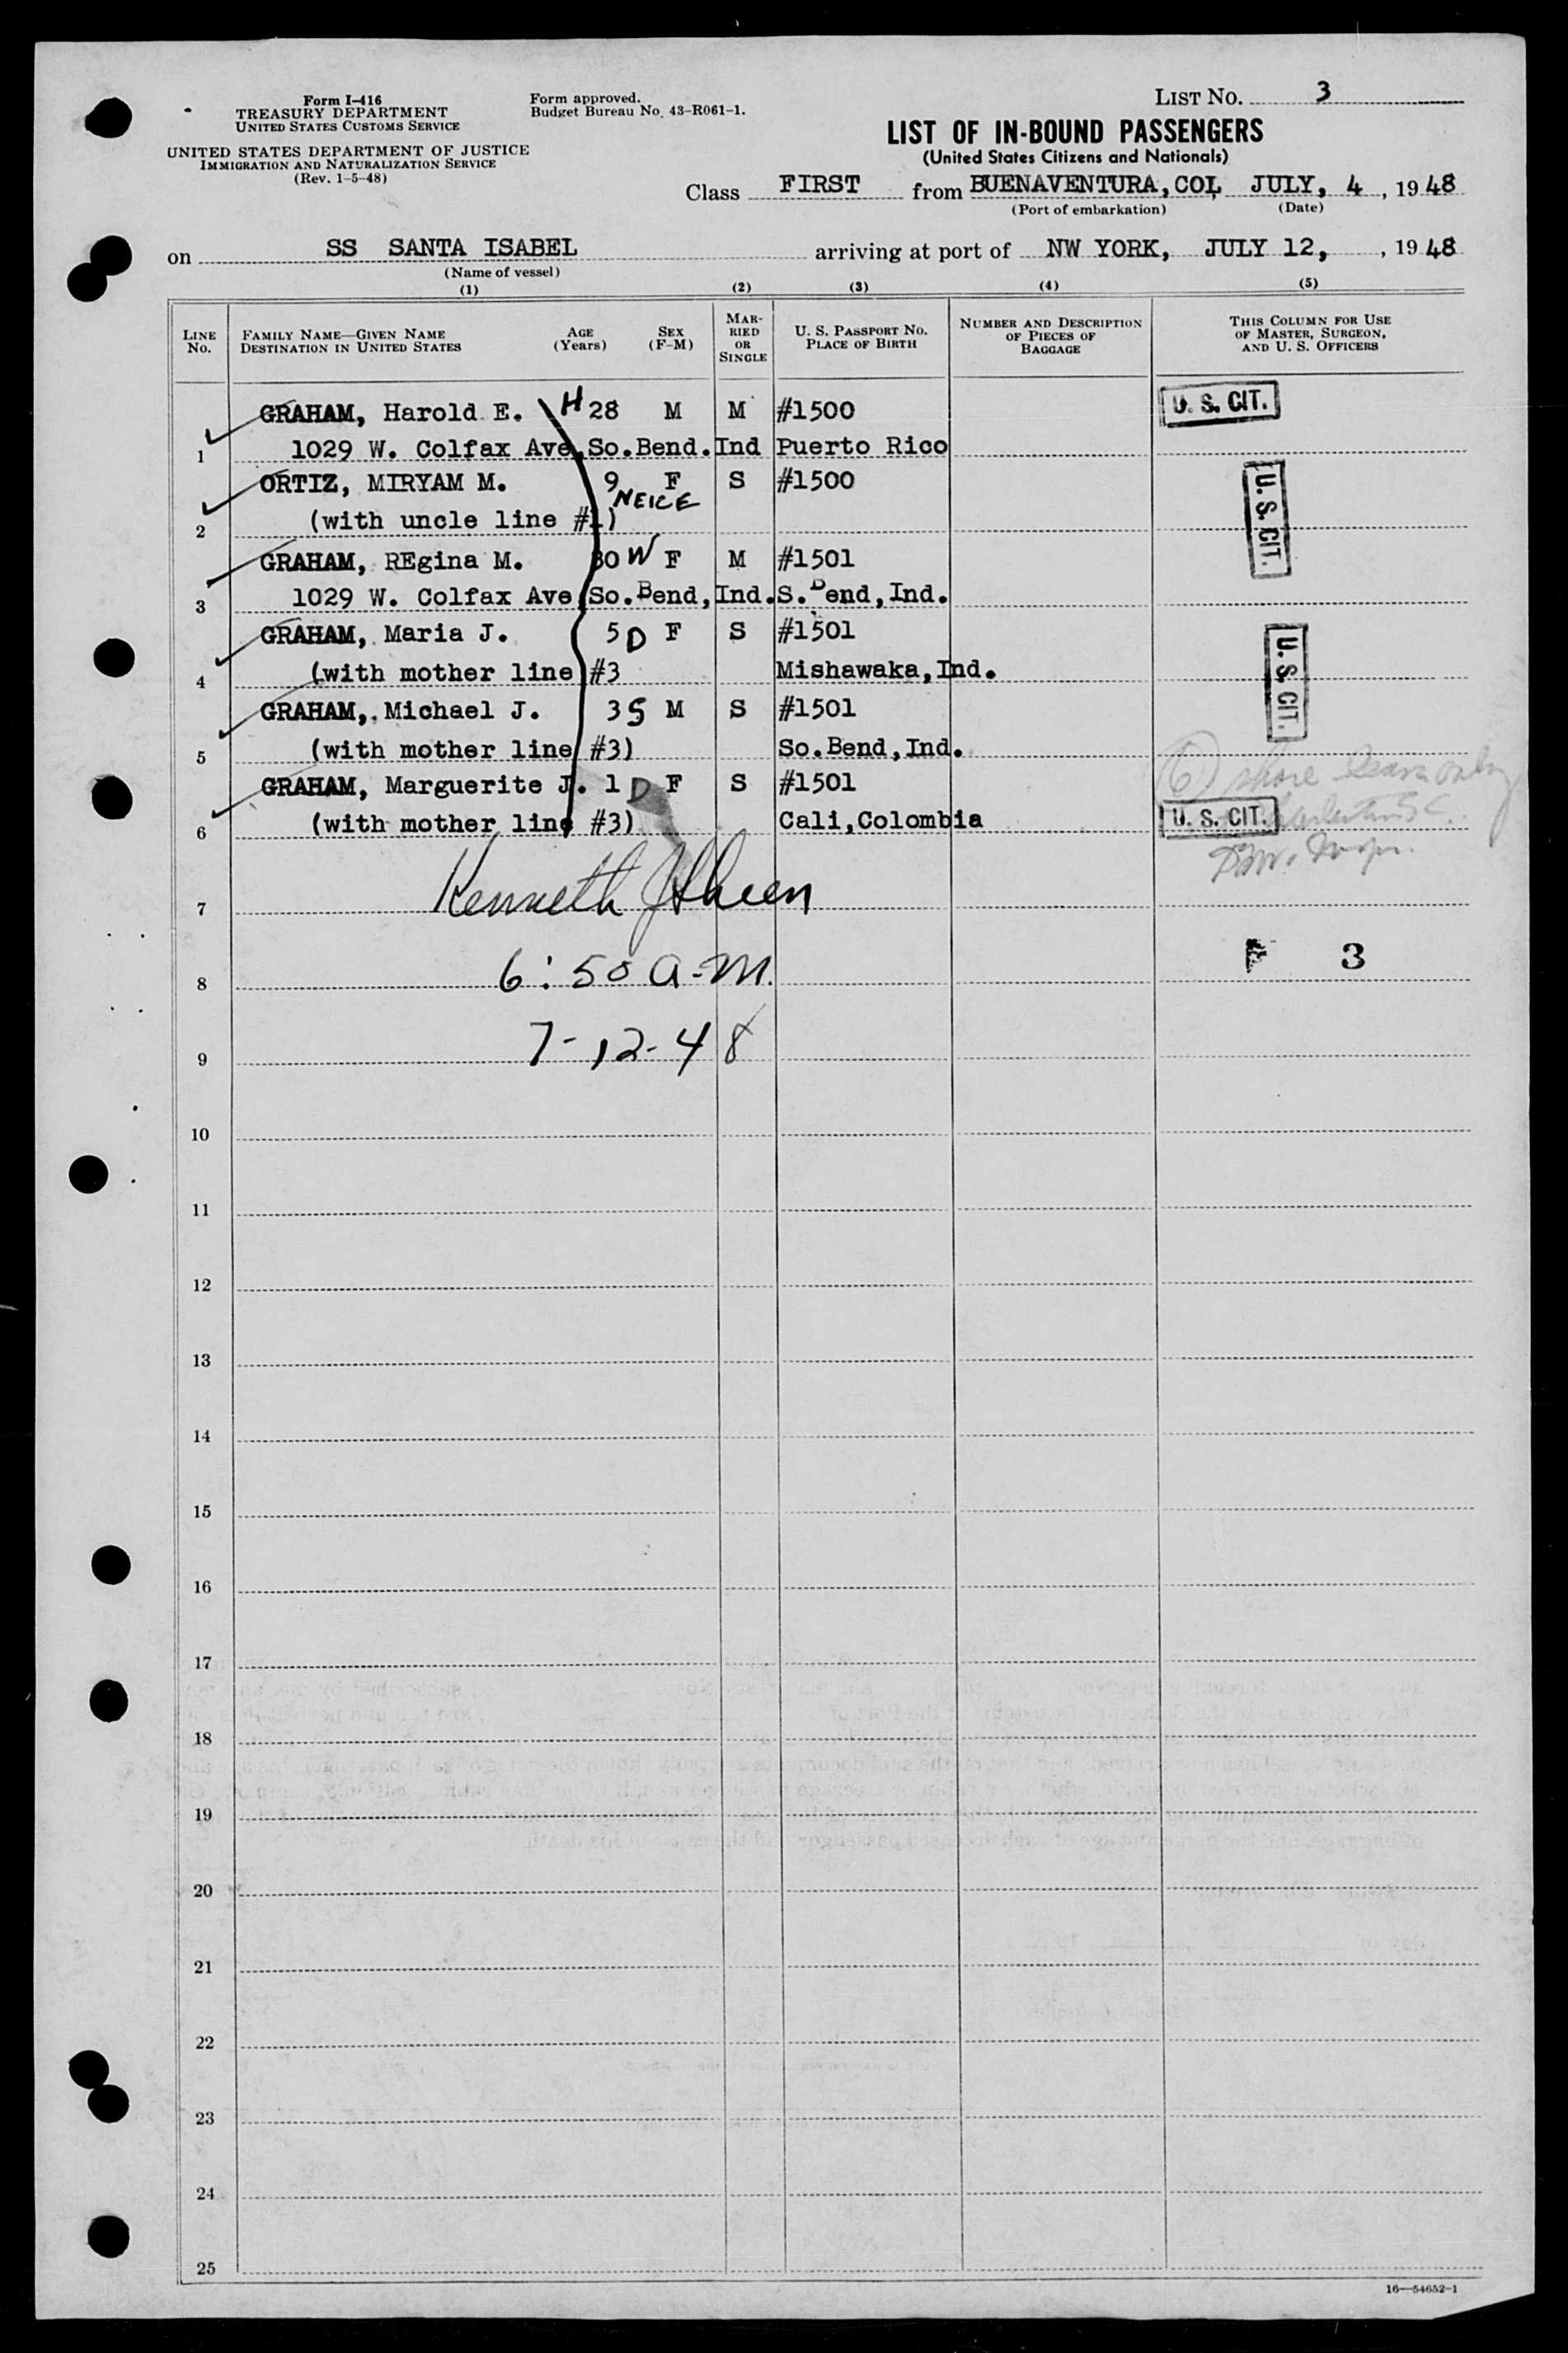 Form I-416
TREASURY DEPARTMENT
UNITED STATES CUSTOMS SERVICE
UNITED STATES DEPARTMENT OF JUSTICE
IMMIGRATION AND NATURALIZATION SERVICE
(Rev. 1-5-48)
Form approved.
Budget Bureau No. 43-R061-1.
LIST NO. 3
LIST OF IN-BOUND PASSENGERS
(United States Citizens and Nationals)
Class FIRST from BUENAVENTURA, COL, JULY, 4, 1948
(Port of embarkation) (Date)
on SS SANTA ISABEL arriving at port of NW YORK, JULY 12, , 1948
(Name of vessel)
(1) (2) (3) (4) (5)
LINE No. FAMILY NAME—GIVEN NAME DESTINATION IN UNITED STATES AGE (Years) SEX (F-M) MARRIED OR SINGLE U. S. PASSPORT NO. PLACE OF BIRTH NUMBER AND DESCRIPTION OF PIECES OF BAGGAGE THIS COLUMN FOR USE OF MASTER, SURGEON, AND U. S. OFFICERS
GRAHAM, Harold E. H 28 M M #1500 U. S. CIT.
1 1029 W. Colfax Ave, So.Bend. Ind Puerto Rico
ORTIZ, MIRYAM M. 9 F S #1500 U. S. CIT.
NEICE
2 (with uncle line #1)
GRAHAM, REgina M. 30 W F M #1501
3 1029 W. Colfax Ave So.Bend, Ind. S. Bend, Ind.
GRAHAM, Maria J. 5 D F S #1501 U. S. CIT.
4 (with mother line #3 Mishawaka, Ind.
GRAHAM,. Michael J. 3 S M S #1501
5 (with mother line #3) So.Bend, Ind.
GRAHAM, Marguerite J. 1 D F S #1501 (6) shore leave only
6 (with mother line #3) Cali, Colombia U. S. CIT.
Kenneth
7
8 6:50 a.m. 3
9 7-12-48
10
11
12
13
14
15
16
17
18
19
20
21
22
23
24
25
16—54652-1